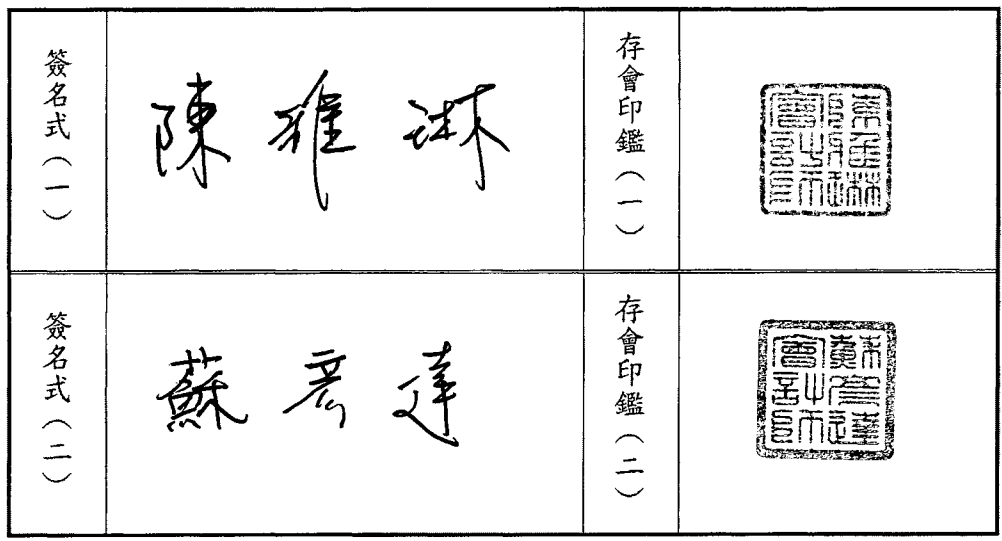 簽名式(一)
陳雅琳
存會印鑑(一)
簽名式(二)
蘇彥達
存會印鑑(二)
蘇彥達
會計師